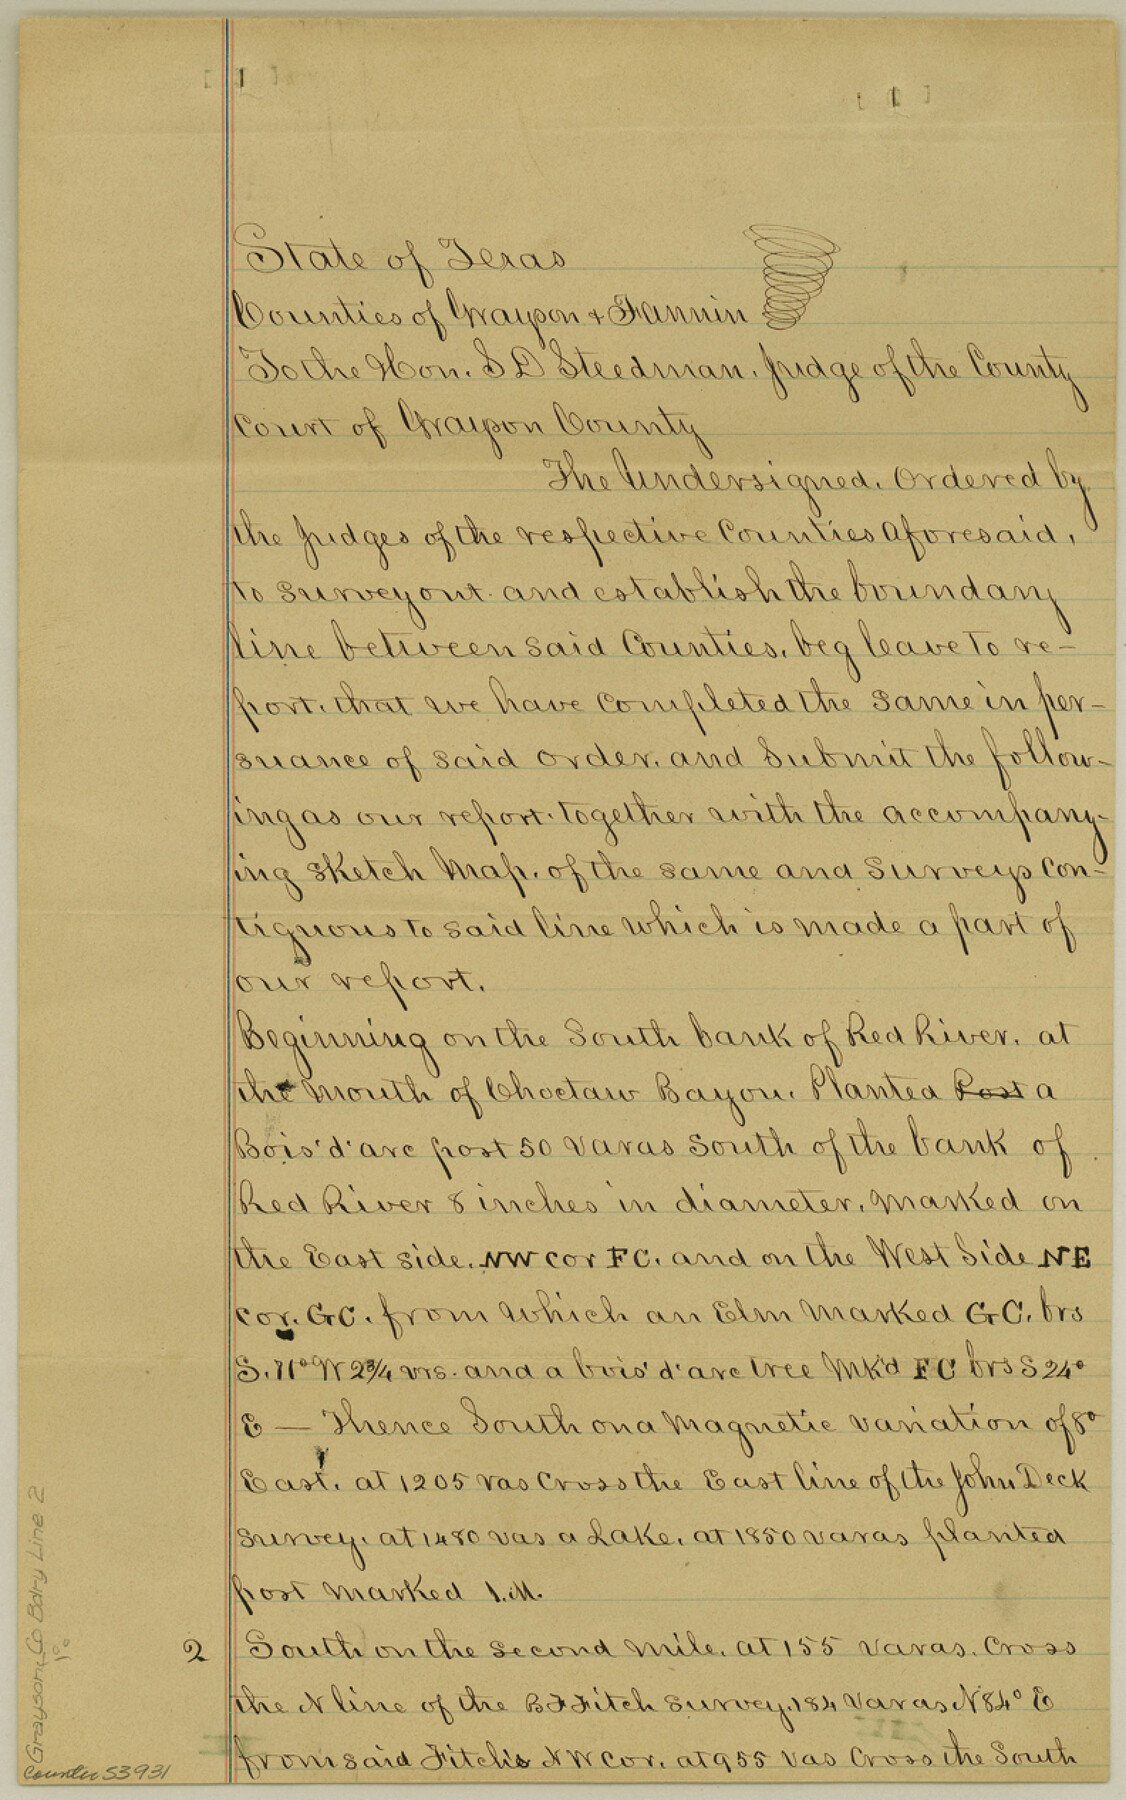 [ 1 ]
[ 1 ]
State of Texas
Counties of Grayson & Fannin
To the Hon. S D Steedman. Judge of the County
Court of Grayson County
The Undersigned. Ordered by
the Judges of the respective Counties aforesaid,
to survey out and establish the boundary
line between said Counties, beg leave to re-
port, that we have completed the same in per-
suance of said order, and submit the follow-
ing as our report together with the accompany-
ing sketch Map, of the same and Surveys con-
tiguous to said line which is made a part of
our report.
Beginning on the South bank of Red River, at
the Mouth of Choctaw Bayou. Planted Post a
Bois'd'arc post 50 Varas South of the bank of
Red River 8 inches in diameter, Marked on
the East side, NW cor FC, and on the West Side NE
cor. GC. from which an Elm Marked GC, brs
S. 11° W 2¾ vrs. and a bois'd'arc tree Mk'd FC brs S 24°
E — Thence South on a Magnetic variation of 8°
East, at 1205 vas Cross the East line of the John Deck
Survey, at 1480 vas a Lake, at 1850 varas planted
post Marked 1.M.
2 South on the second mile, at 155 varas. Cross
the N line of the B F Fitch survey, 184 Varas N 84° E
from said Fitch's NW cor, at 955 vas Cross the South
Grayson Co Bdry Line 2
counter 53931